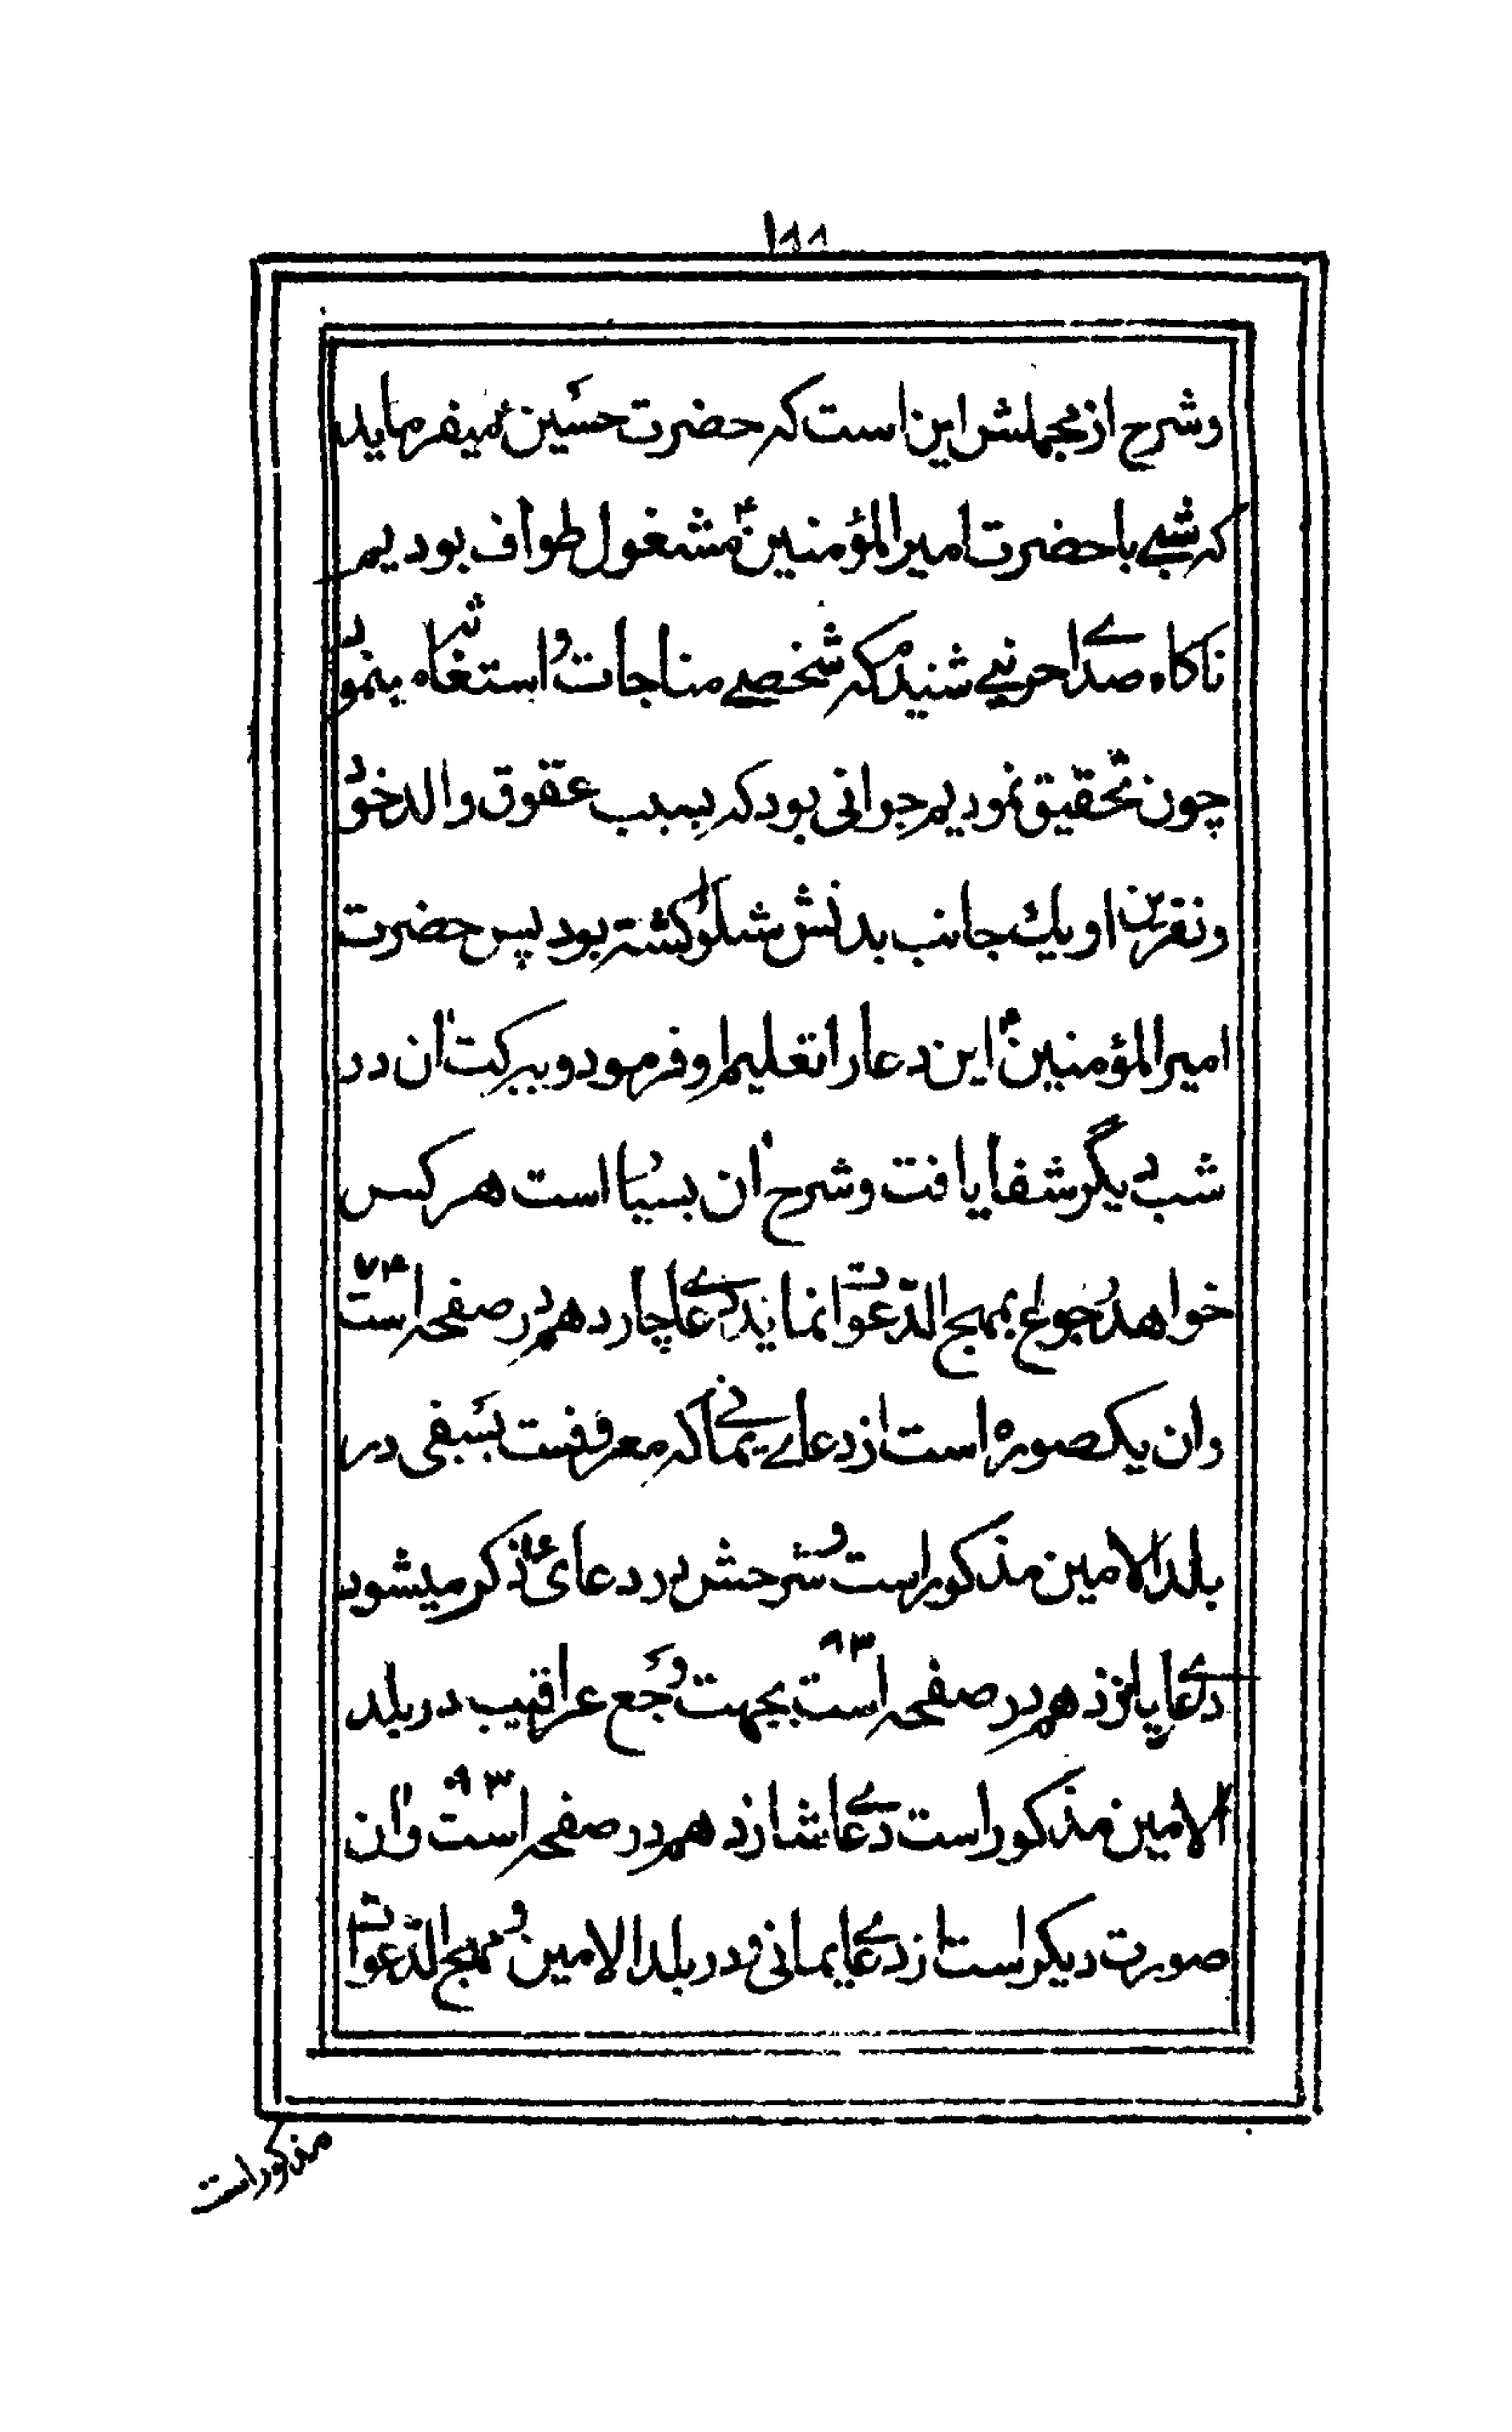 ۱۸۸
وشرح از مجملش این است که حضرت حسین ع میفرماید
که شبے با حضرت امیرالمؤمنین ع مشغول طواف بودیم
ناکاه صداے حزینے شنیدم که شخصے مناجات و استغاثه مینمود
چون تحقیق نمودیم جوانی بود که بسبب عقوق والد خود
ونفرین او یك جانب بدنش شلول کشته بود پس حضرت
امیرالمؤمنین ع این دعا را تعلیم او فرمود و ببرکت آن در
شب دیگر شفا یافت وشرح آن بسیار است هر کس
خواهد رجوع بمهج الدعوات نماید دعاے چاردهم در صفحه ۷۴ است
وان یک صورة است از دعاے یمانے که معروفست بسیفی در
بلد الامین مذکور است و شرحش در دعای ذکر میشود
دعاے پانزدهم در صفحه ۹۳ است بجهت وجع عراقیب در بلد
الامین مذکور است دعاے شانزدهم در صفحه ۹۳ است وآن
صورت دیکر است از دعاے یمانی و در بلد الامین و مهج الدعوات
مذکور است